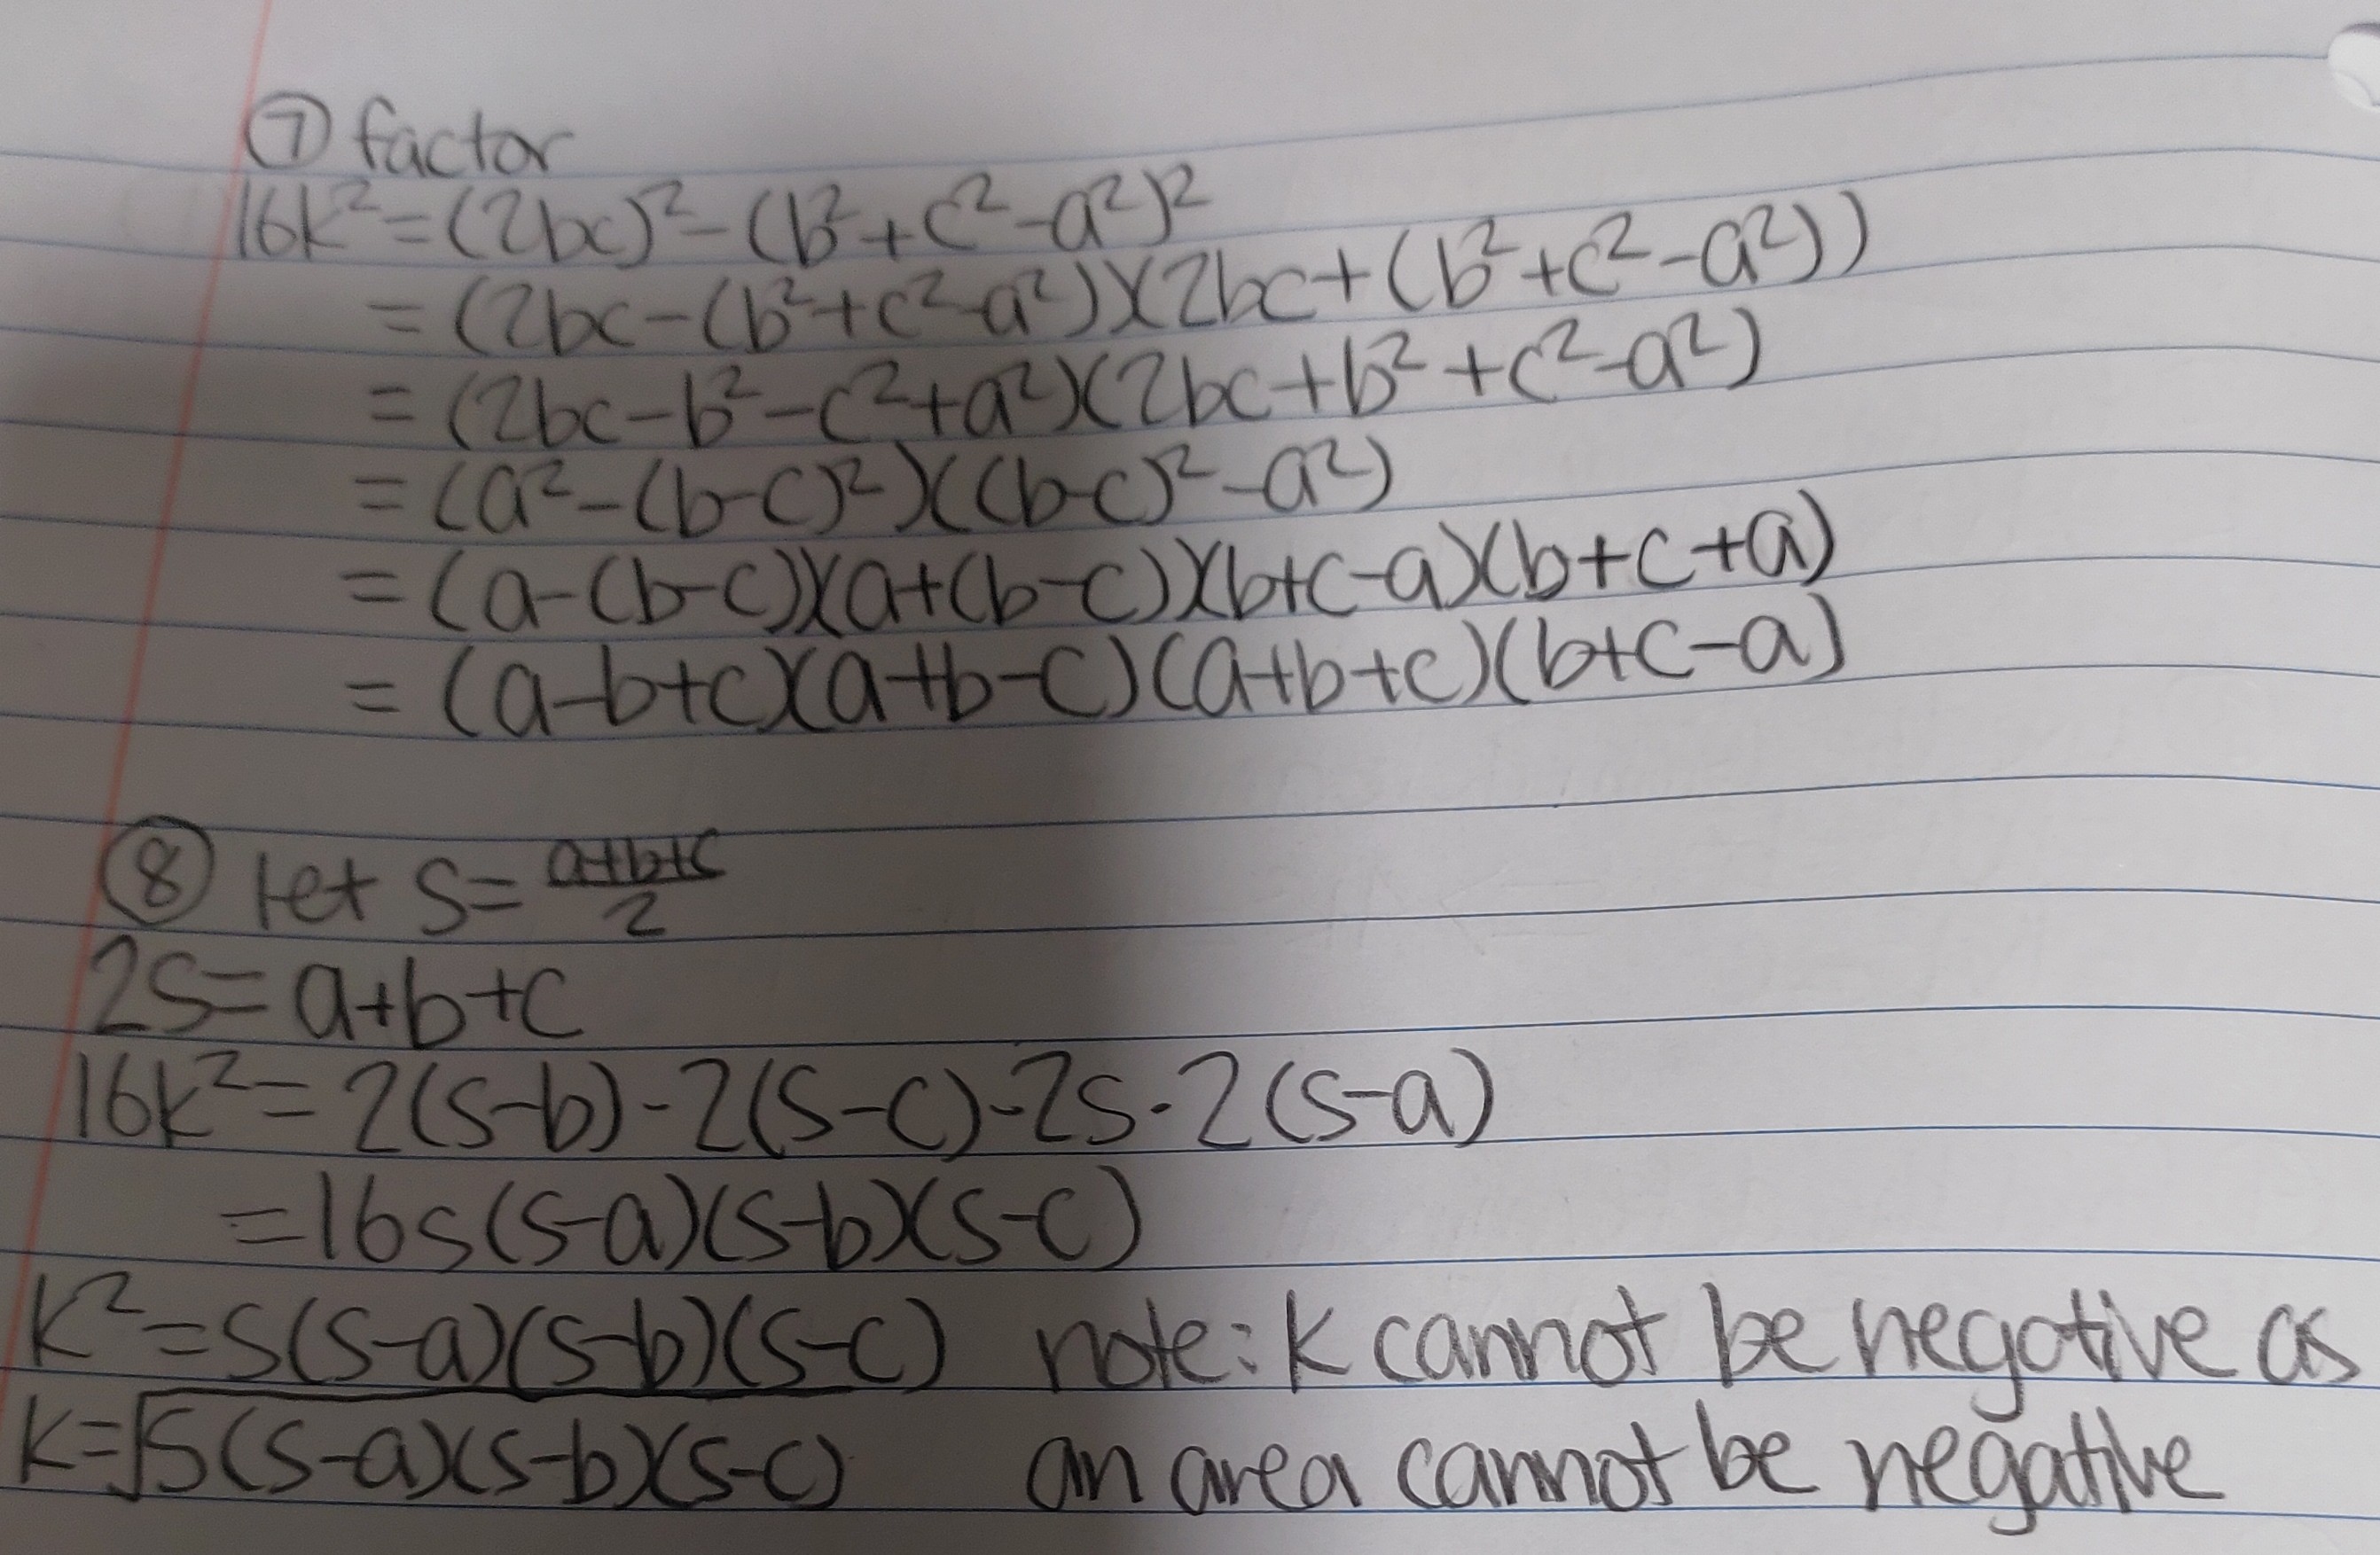 ⑦ factor
16k² = (2bc)² - (b² + c² - a²)²
= (2bc - (b² + c² - a²))(2bc + (b² + c² - a²))
= (2bc - b² - c² + a²)(2bc + b² + c² - a²)
= (a² - (b-c)²)((b-c)² - a²)
= (a - (b-c))(a + (b-c))(b+c-a)(b+c+a)
= (a-b+c)(a+b-c)(a+b+c)(b+c-a)
⑧ let s = \frac{a+b+c}{2}
2s = a+b+c
16k² = 2(s-b) · 2(s-c) · 2s · 2(s-a)
= 16s(s-a)(s-b)(s-c)
k² = s(s-a)(s-b)(s-c) note: k cannot be negative as
k = √s(s-a)(s-b)(s-c) an area cannot be negative